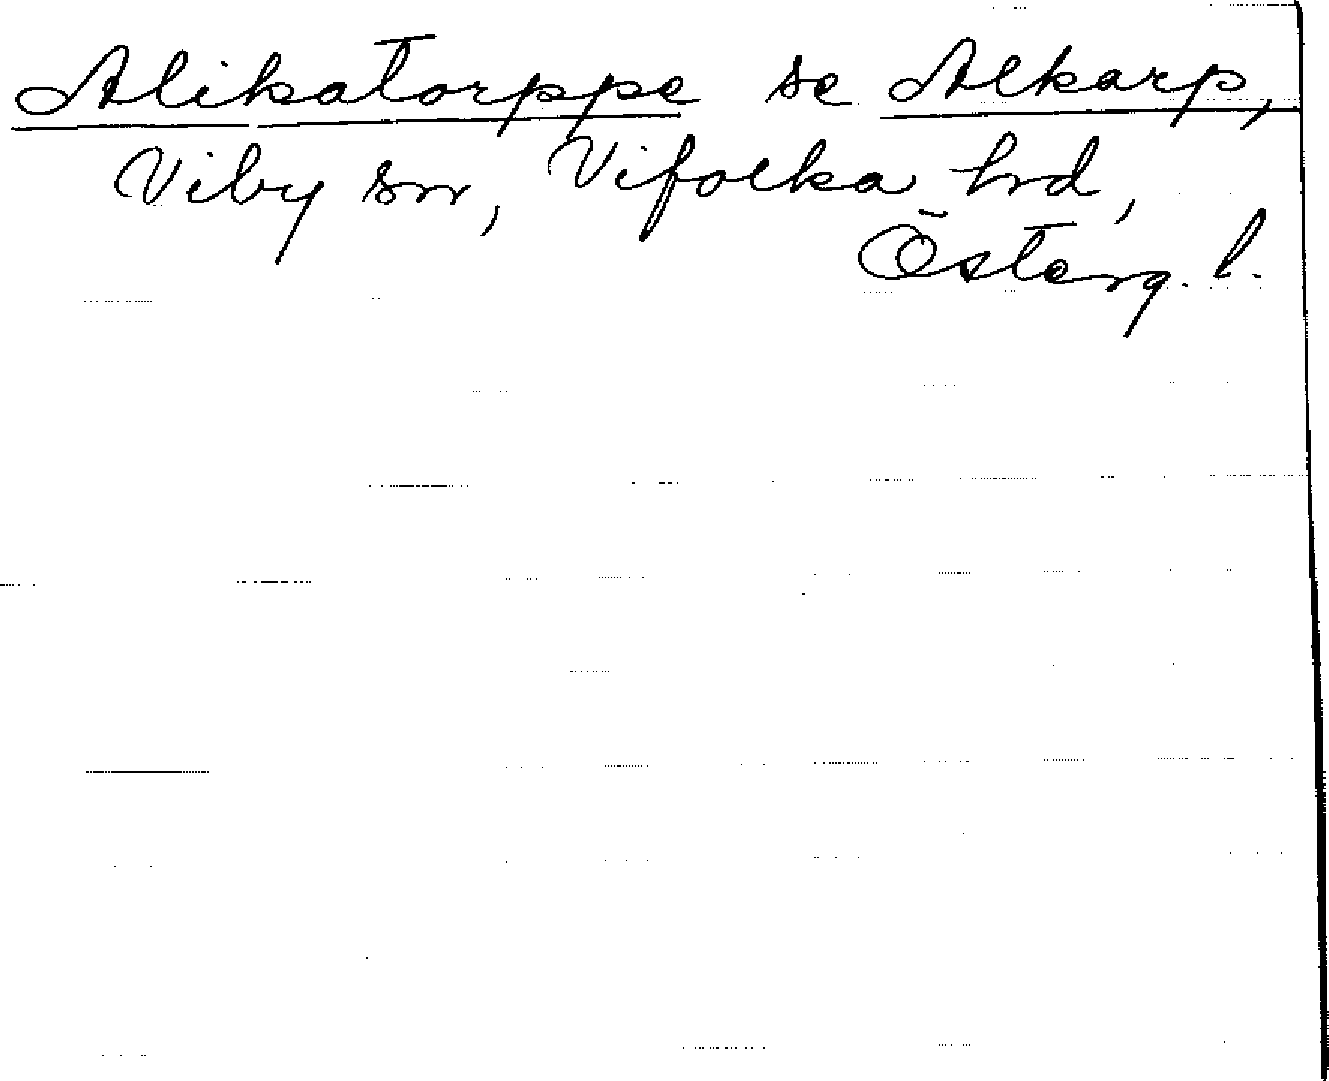 Alikatorppe se Alkarp,
Viby sn, Vifolka hrd,
Österg. l.